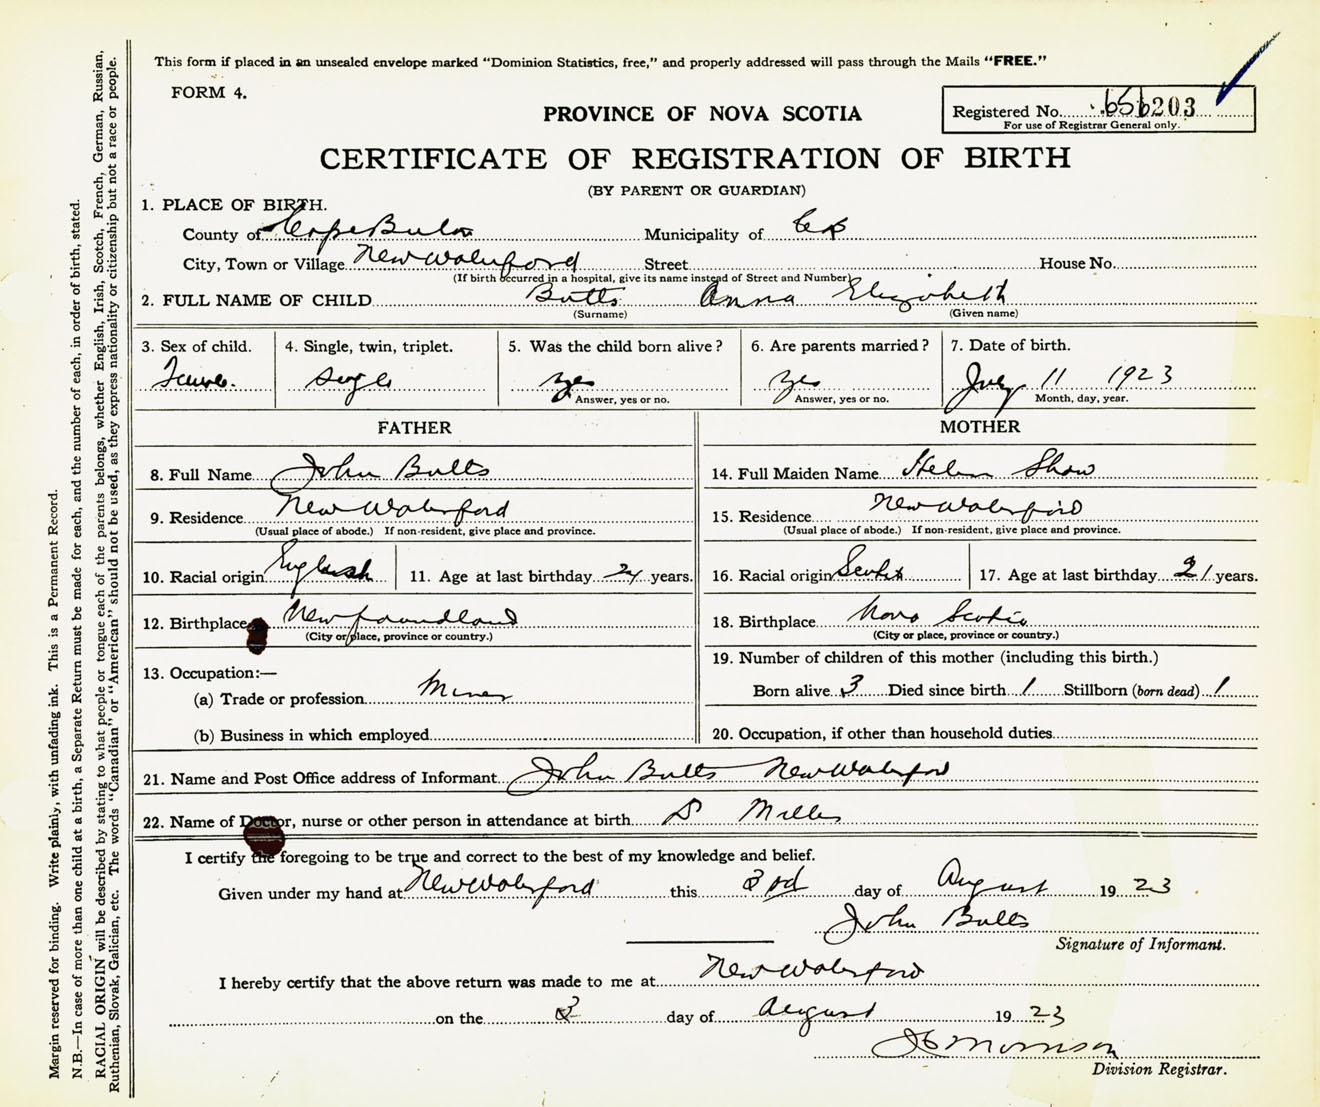 This form if placed in an unsealed envelope marked "Dominion Statistics, free," and properly addressed will pass through the Mails "FREE."
FORM 4.
Registered No. 656203
For use of Registrar General only.
PROVINCE OF NOVA SCOTIA
CERTIFICATE OF REGISTRATION OF BIRTH
(BY PARENT OR GUARDIAN)
1. PLACE OF BIRTH.
County of Cape Breton Municipality of CB
City, Town or Village New Waterford Street House No.
(If birth occurred in a hospital, give its name instead of Street and Number)
2. FULL NAME OF CHILD Butts Anna Elizabeth
(Surname) (Given name)
3. Sex of child. 4. Single, twin, triplet. 5. Was the child born alive? 6. Are parents married? 7. Date of birth.
Female. Single yes yes July 11 1923
Answer, yes or no. Answer, yes or no. Month, day, year.
FATHER MOTHER
8. Full Name John Butts 14. Full Maiden Name Helen Shaw
9. Residence New Waterford 15. Residence New Waterford
(Usual place of abode.) If non-resident, give place and province. (Usual place of abode.) If non-resident, give place and province.
10. Racial origin English 11. Age at last birthday 24 years. 16. Racial origin Scotch 17. Age at last birthday 21 years.
12. Birthplace Newfoundland 18. Birthplace Nova Scotia
(City or place, province or country.) (City or place, province or country.)
13. Occupation:— 19. Number of children of this mother (including this birth.)
(a) Trade or profession Miner Born alive 3 Died since birth 1 Stillborn (born dead) 1
(b) Business in which employed 20. Occupation, if other than household duties
21. Name and Post Office address of Informant John Butts New Waterford
22. Name of Doctor, nurse or other person in attendance at birth S Miller
I certify the foregoing to be true and correct to the best of my knowledge and belief.
Given under my hand at New Waterford this 3rd day of August 1923
John Butts
Signature of Informant.
I hereby certify that the above return was made to me at New Waterford
on the 3 day of August 1923
Morrison
Division Registrar.
Margin reserved for binding. Write plainly, with unfading ink. This is a Permanent Record.
N.B.—In case of more than one child at a birth, a Separate Return must be made for each, and the number of each, in order of birth, stated.
RACIAL ORIGIN will be described by stating to what people or tongue each of the parents belongs, whether English, Irish, Scotch, French, German, Russian,
Ruthenian, Slovak, Galician, etc. The words "Canadian" or "American" should not be used, as they express nationality or citizenship but not a race or people.